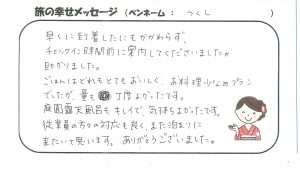 旅の幸せメッセージ（ペンネーム： つくし ）
早くに到着したにもかかわらず、
チェックイン時間前に案内してくださいましたか
助かりました。
ごはんはどれもとてもおいしく、お料理少なめプラン
でしたが、量も 丁度よかったです。
庭園露天風呂もキレイで、気持ちよかったです。
従業員の方々の対応も良く、また泊まりに
来たいて思います。ありがとうございました。